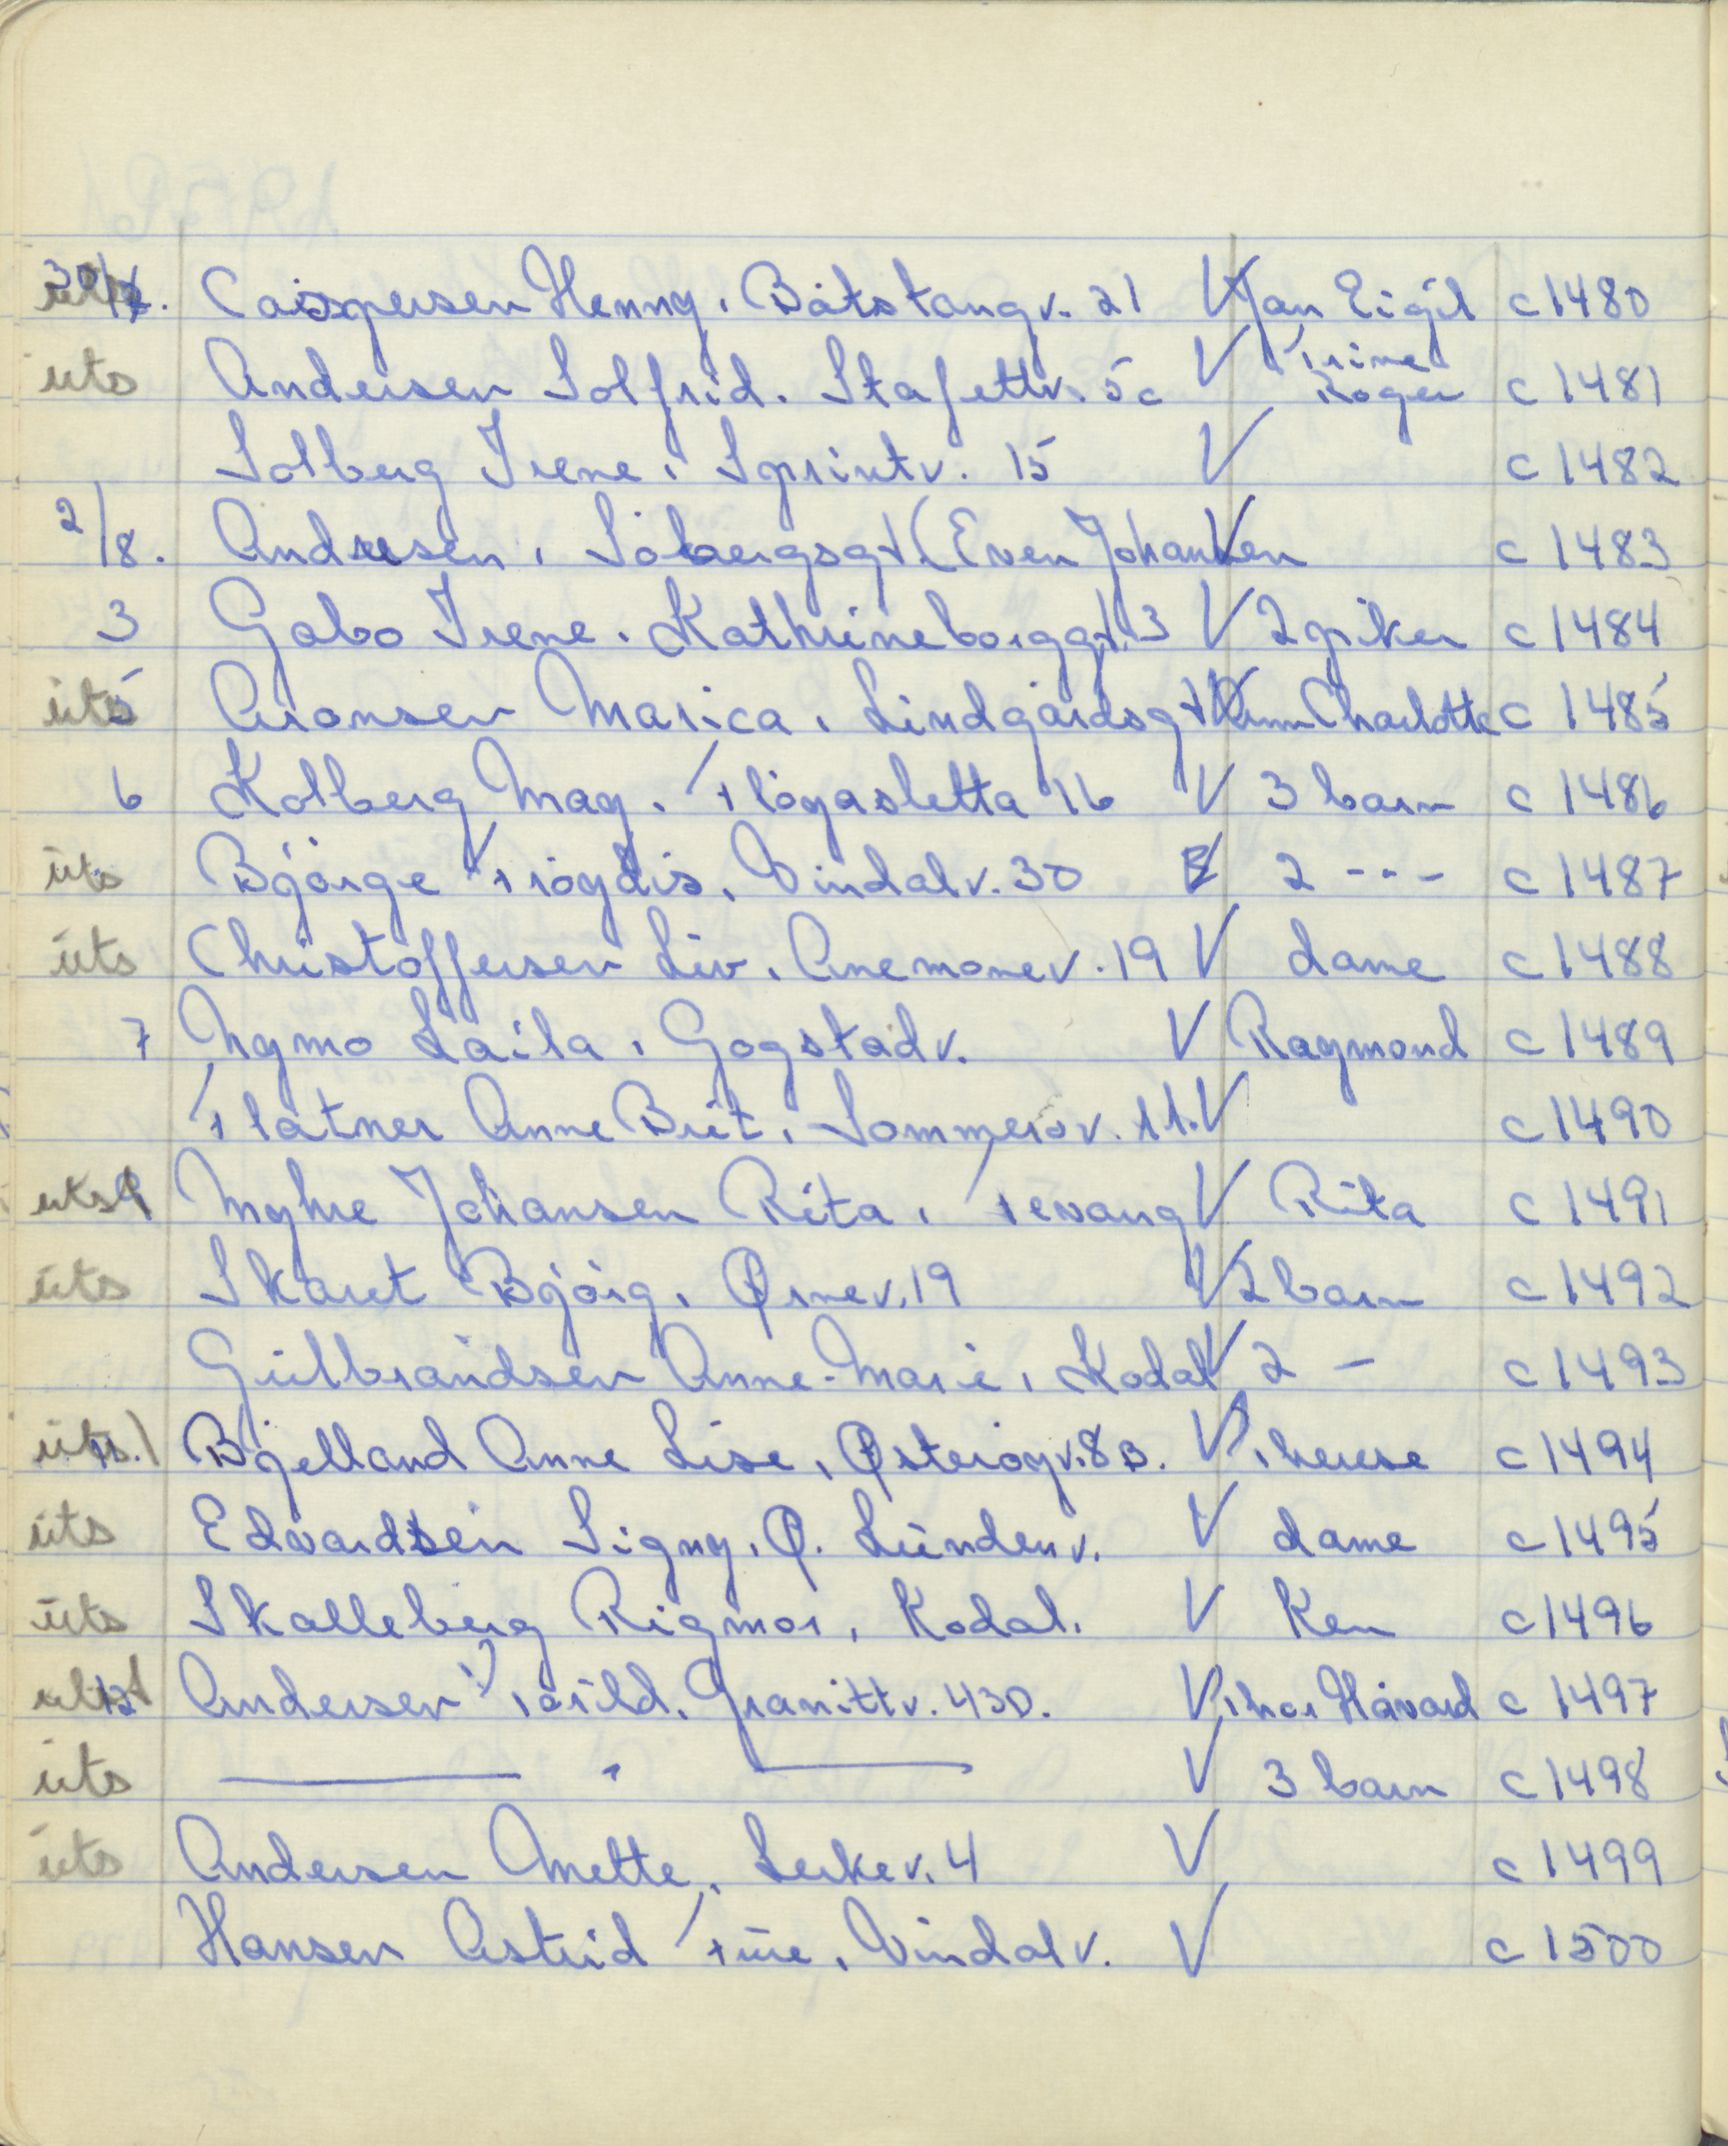 30/7. Caspersen Henny, Båtstangv. 21 V Jan Eigil c 1480
uts Andersen Solfrid. Stafettv. 5c V Trine Roger c 1481
Solberg Irene, Sprintv. 15 V c 1482
2/8. Andresen, Sobergsgt (Even Johansen V c 1483
3 Gabo Irene. Kathrineborggt. 3 V 2 piker c 1484
uts 5 Aronsen Marica, Lindgårdsgt V Ann Charlotte c 1485
6 Kolberg May. Fløyasletta 16 V 3 barn c 1486
uts Bjørge Frøydis, Vindalv. 30 V 2 --- c 1487
uts Christoffersen Liv, Anemonev. 19 V dame c 1488
7 Nymo Laila, Gogstadv. V Raymond c 1489
Flåtner Anne Brit, Sommerov. 11. V c 1490
uts 9 Myhre Johansen Rita, Tevang V Rita c 1491
uts Skaret Bjørg, Ørnev. 19 V 2 barn c 1492
Gulbrandsen Anne-Marie, Kodal V 2 — c 1493
uts 11. Bjelland Anne Lise, Østerøyv. 8B. V Therese c 1494
uts Edvardsen Signy, Ø. Lundenv. V dame c 1495
uts Skalleberg Rigmor, Kodal. V Ken c 1496
12 Andersen Torild, Granittv. 43D. V Thor Håvard c 1497
uts —— " —— V 3 barn c 1498
uts Andersen Anette, Lerkev. 4 V c 1499
Hansen Astrid Tue, Vindalv. V c 1500